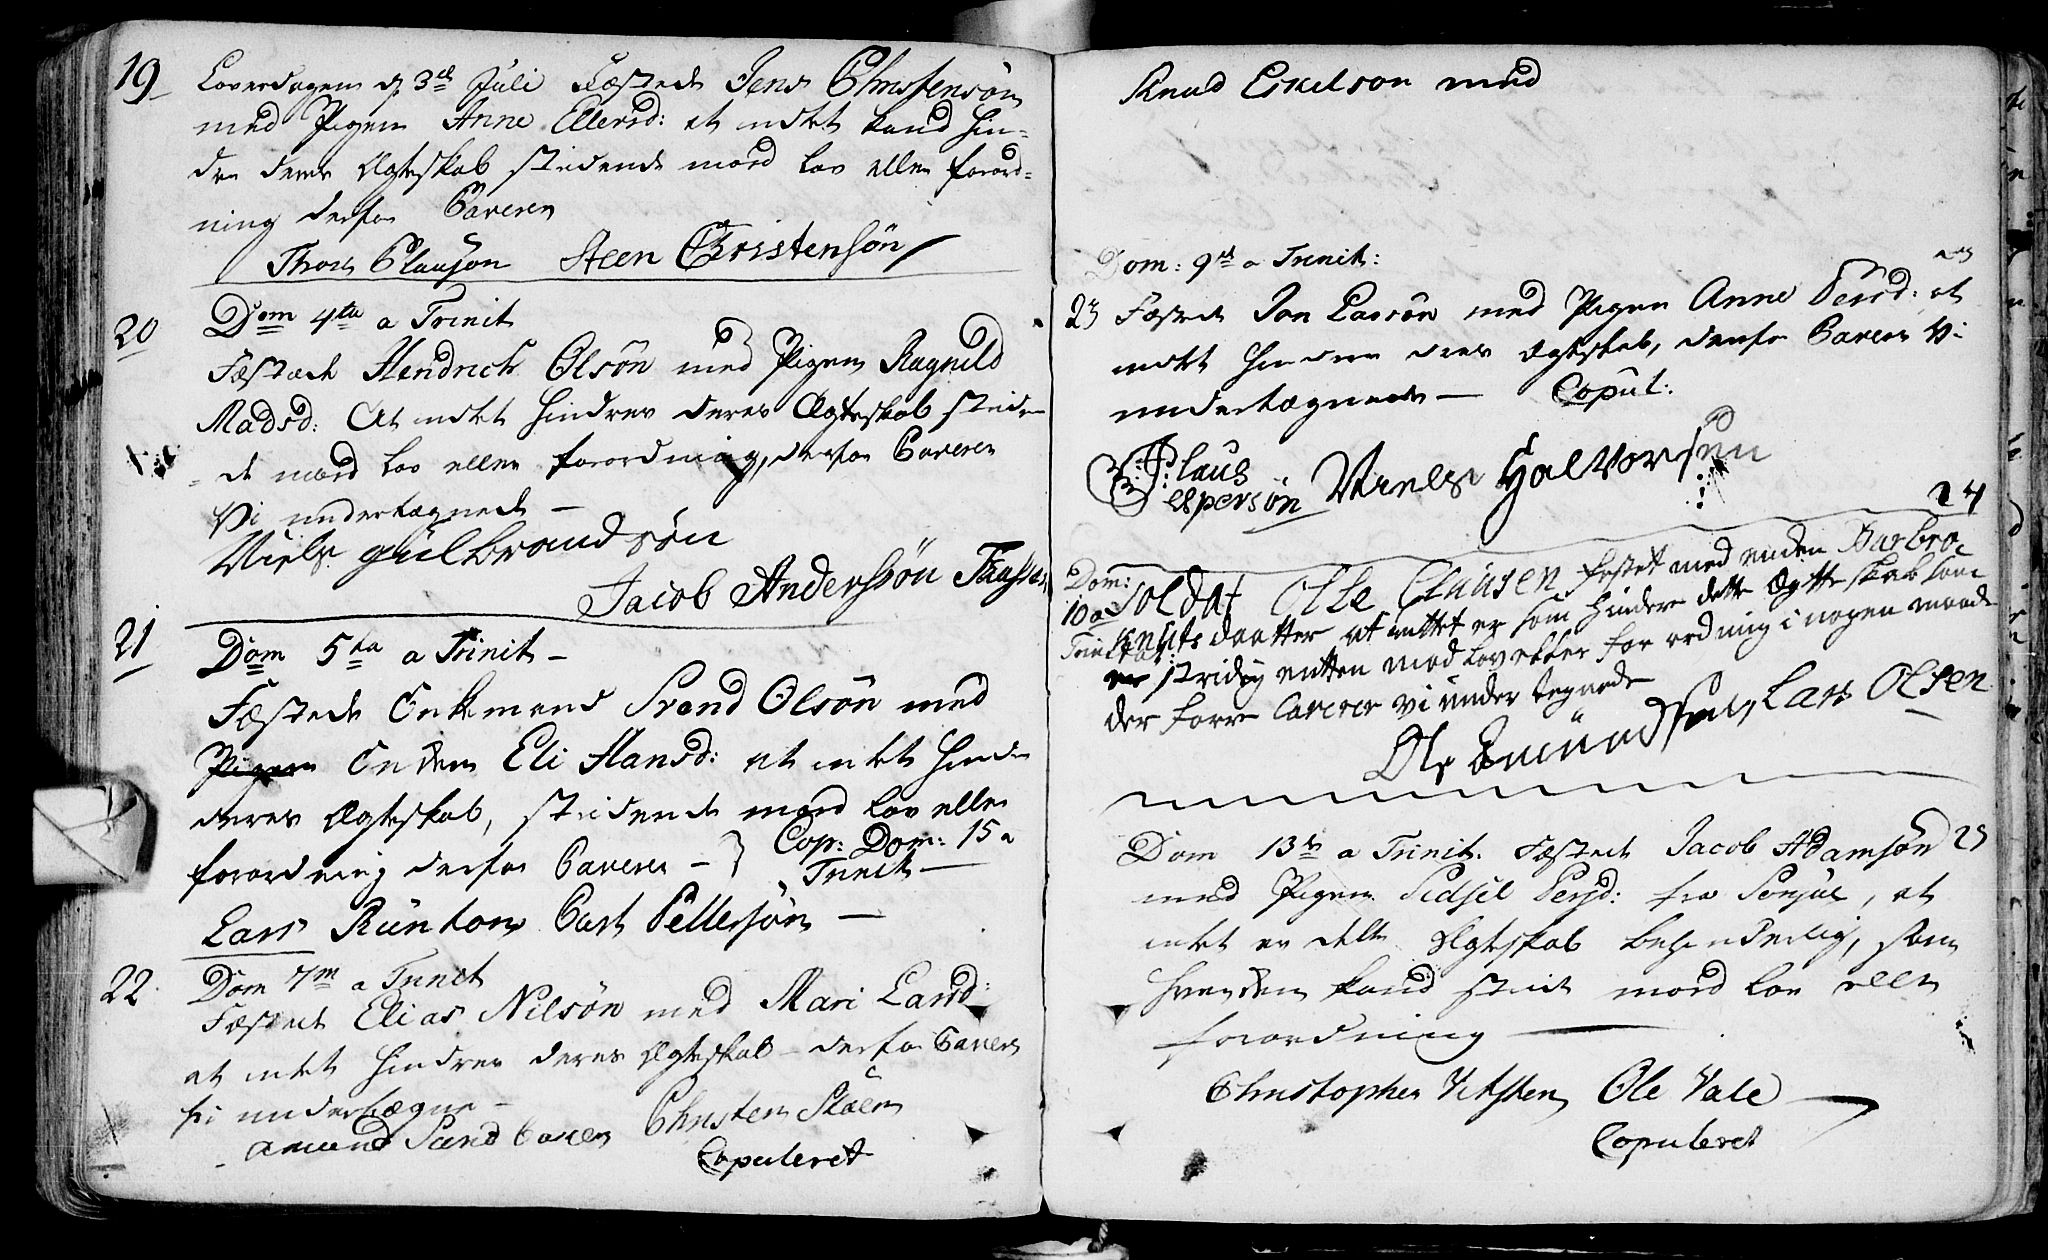 19
Løverdagen d 3de Juli Fæstede Jens Christensøn
med Pigen Anne Ellersd: at intet kand hin-
dre deres Ægteskab stridende mod Lov eller forord-
ning derfor Caverer
Thor Clausøn Steen Christensøn
20
Dom 4ta a Trinit
Fæstede Hendrich Olsøn med Pigen Ragnild
Madsd: At intet hindrer deres Ægteskab striden-
de mod lov eller forordning, derfor Caverer
Vi undertegnede —
Niels gulbrandsøn
Jacob Anderssøn
21
Dom 5ta a Trinit —
Fæstede Enkemand Svend Olsøn med
Pigen Enken Eli Hansd: at intet hindr
deres Ægteskab, stridende mod lov eller
forordning derfor Caverer — Cop: Dom: 15 a
Trinit —
Lars Runton Cast Pettersøn —
22
Dom 7m a Trinit
Fæstede Elias Nilsøn med Mari Larsd:
at intet hindrer deres Ægteskab — derfor Caverer
Vi undertegne —
Amund Sand Christen Skoen
Copuleret
Knud Eskelson med
Dom: 9de a Trinit:
23 Fæstede Jon Larsøn med Pigen Anne Persd: at
intet hindrer deres Ægteskab, derfor Caverer Vi
undertegnede — Copul:
Claus
Espersøn Niels Halvorsen
24
Dom:
10 a
Trinit
Soldat Olle Clausen festet med enken Barbro
Knutsdaatter at inttet er som hindere dette Ægtteskab som
er stridig entten mod lov eller for ordning i nogen maade
der forre Caverer vi under tegnede
Ole Lars Olsen
Dom 13de a Trinit. Fæstede Jacob Adamsøn 25
med Pigen Sidsel Persd: fra , at
intet er dette Ægteskab behinderlig, som
hverken kand stride mod lov eller
forordning —
Christopher Ole Vale
Copuleret